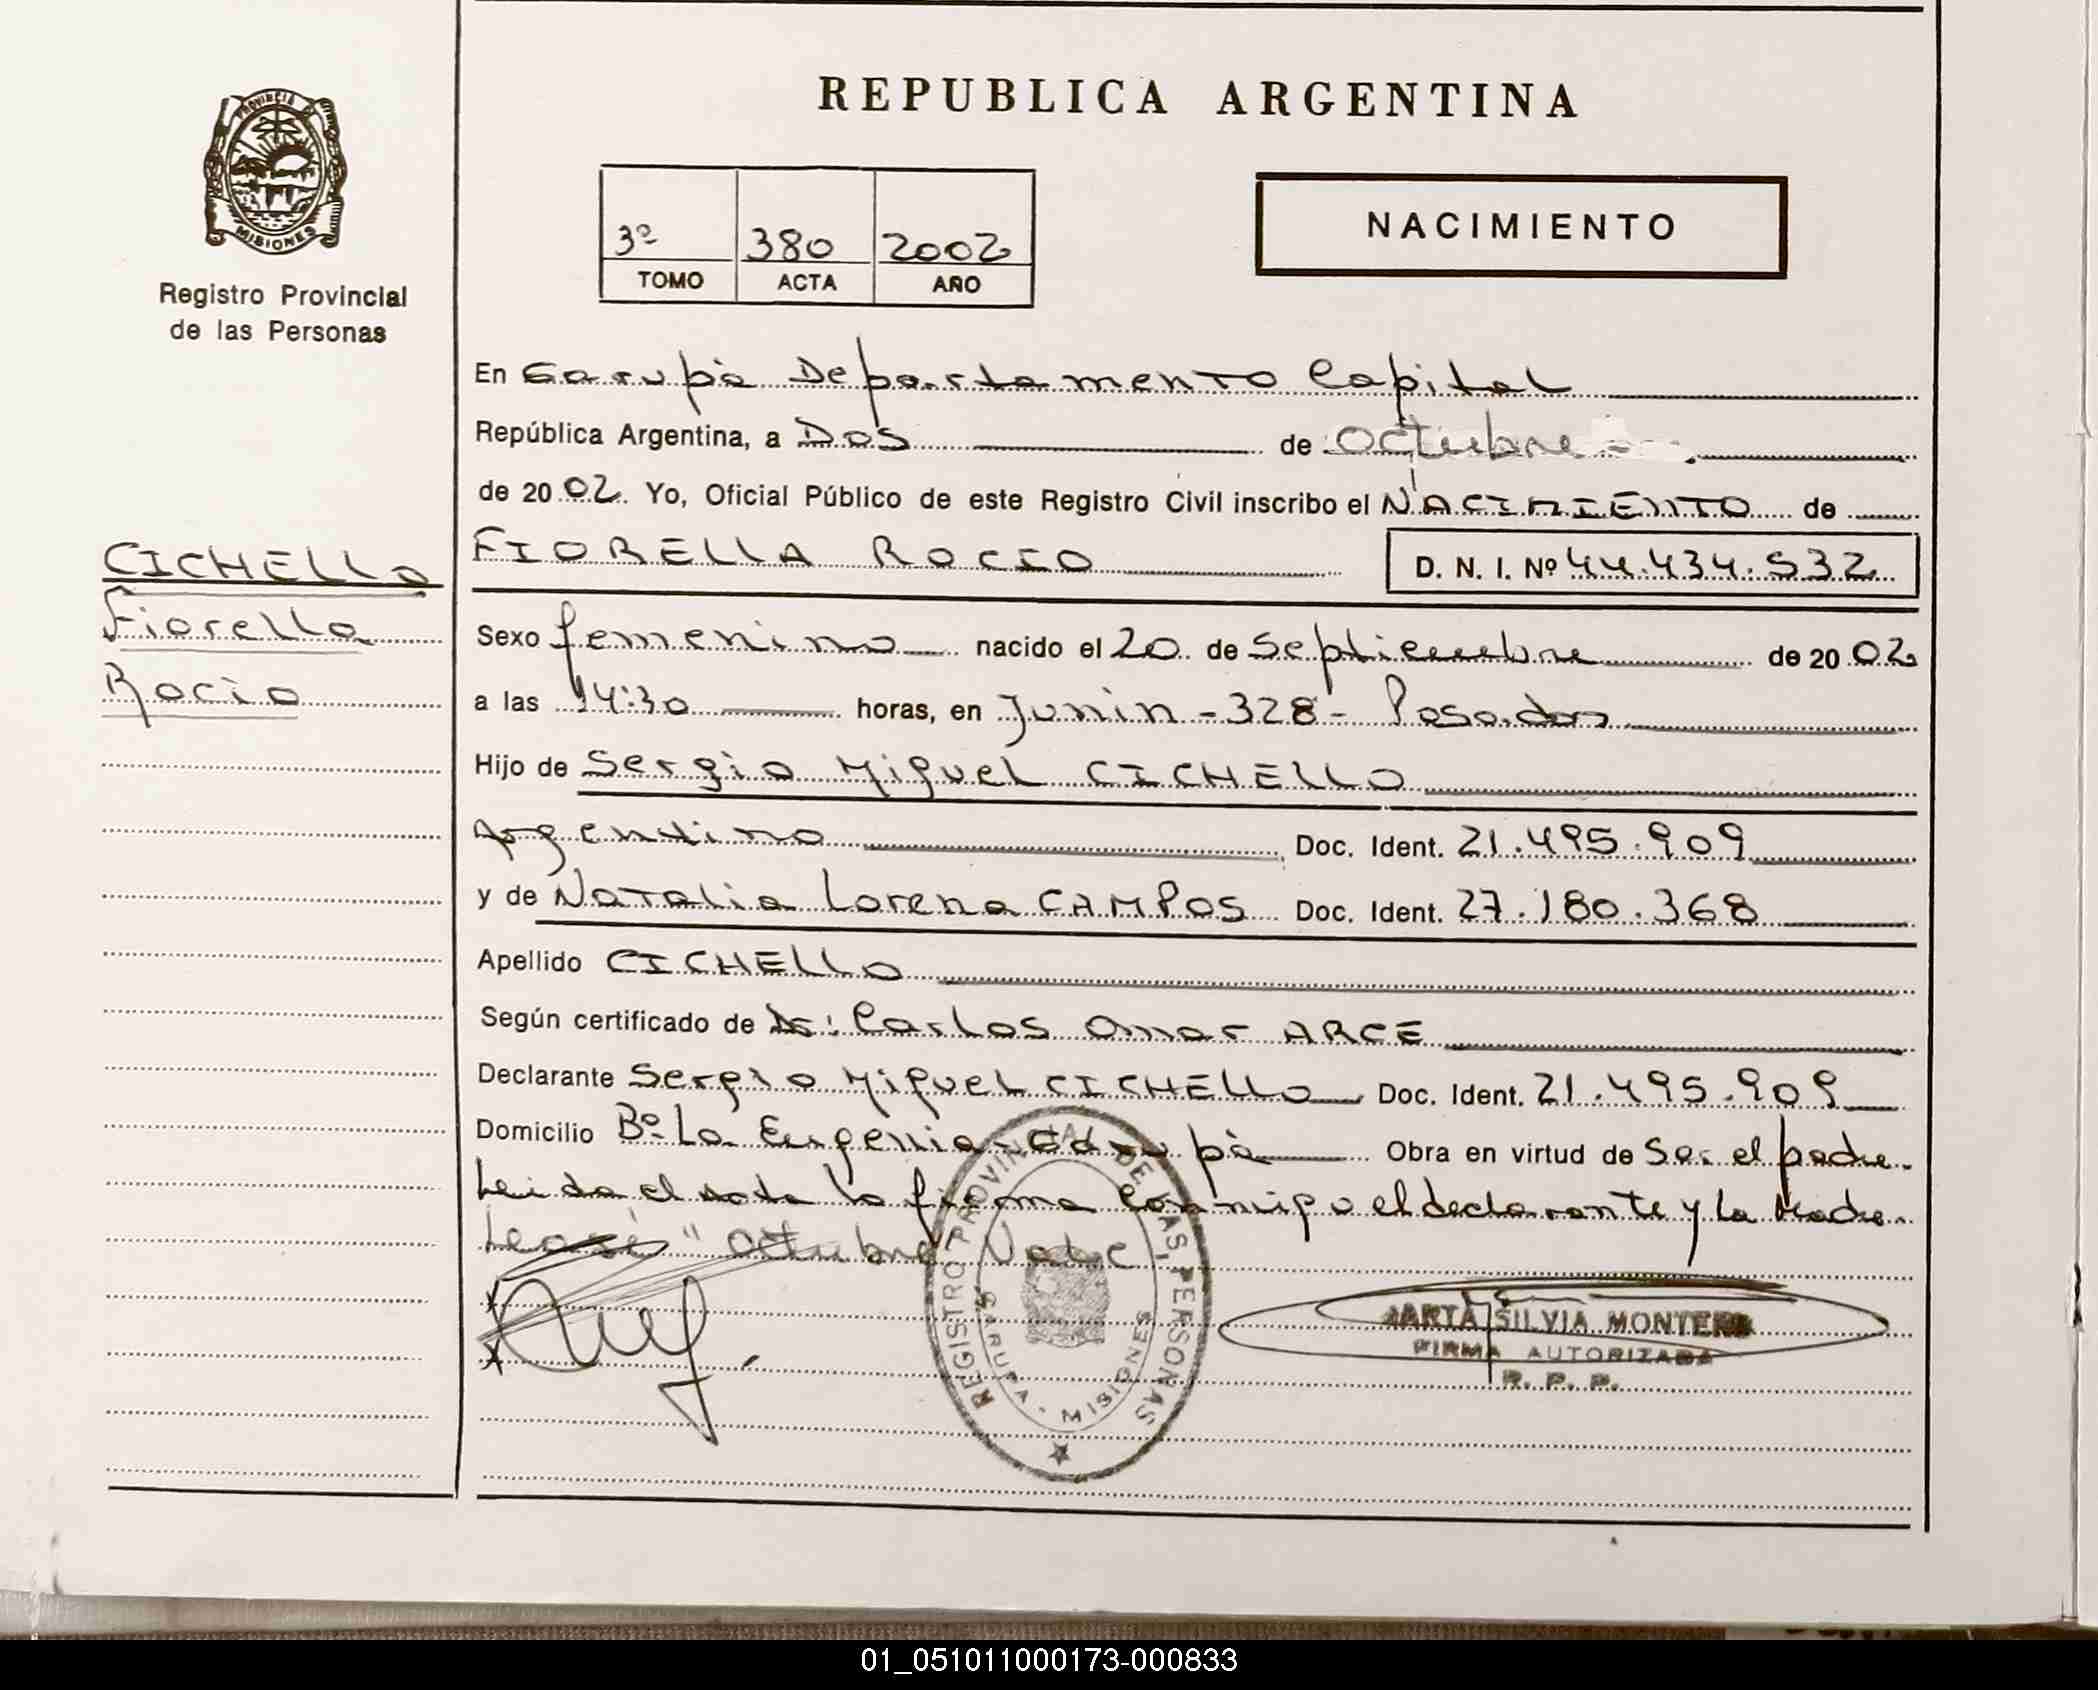 REPUBLICA ARGENTINA
PROVINCIA DE MISIONES
Registro Provincial
de las Personas
3º 380 2002
TOMO ACTA AÑO
NACIMIENTO
En Garupà Departamento Capital
República Argentina, a Dos de Octubre
de 2002. Yo, Oficial Público de este Registro Civil inscribo el NACIMIENTO de
FIORELLA ROCIO D. N. I. Nº 44.434.532
CICHELLO
Fiorella
Rocio
Sexo femenino nacido el 20 de Septiembre de 2002
a las 14:30 horas, en Junin - 328 - Posadas
Hijo de Sergio Miguel CICHELLO
Argentino Doc. Ident. 21.495.909
y de Natalia Lorena CAMPOS Doc. Ident. 27.180.368
Apellido CICHELLO
Según certificado de Dr: Carlos Omar ARCE
Declarante Sergio Miguel CICHELLO Doc. Ident. 21.495.909
Domicilio Bº La Eugenia - Garupà Obra en virtud de Ser el padre.
Leida el acta la firma conmigo el declarante y la Madre.
"Octubre" Vale
REGISTRO PROVINCIAL DE LAS PERSONAS
GARUPA - MISIONES
MARTA SILVIA MONTERO
FIRMA AUTORIZADA
R. P. P.
01_051011000173-000833